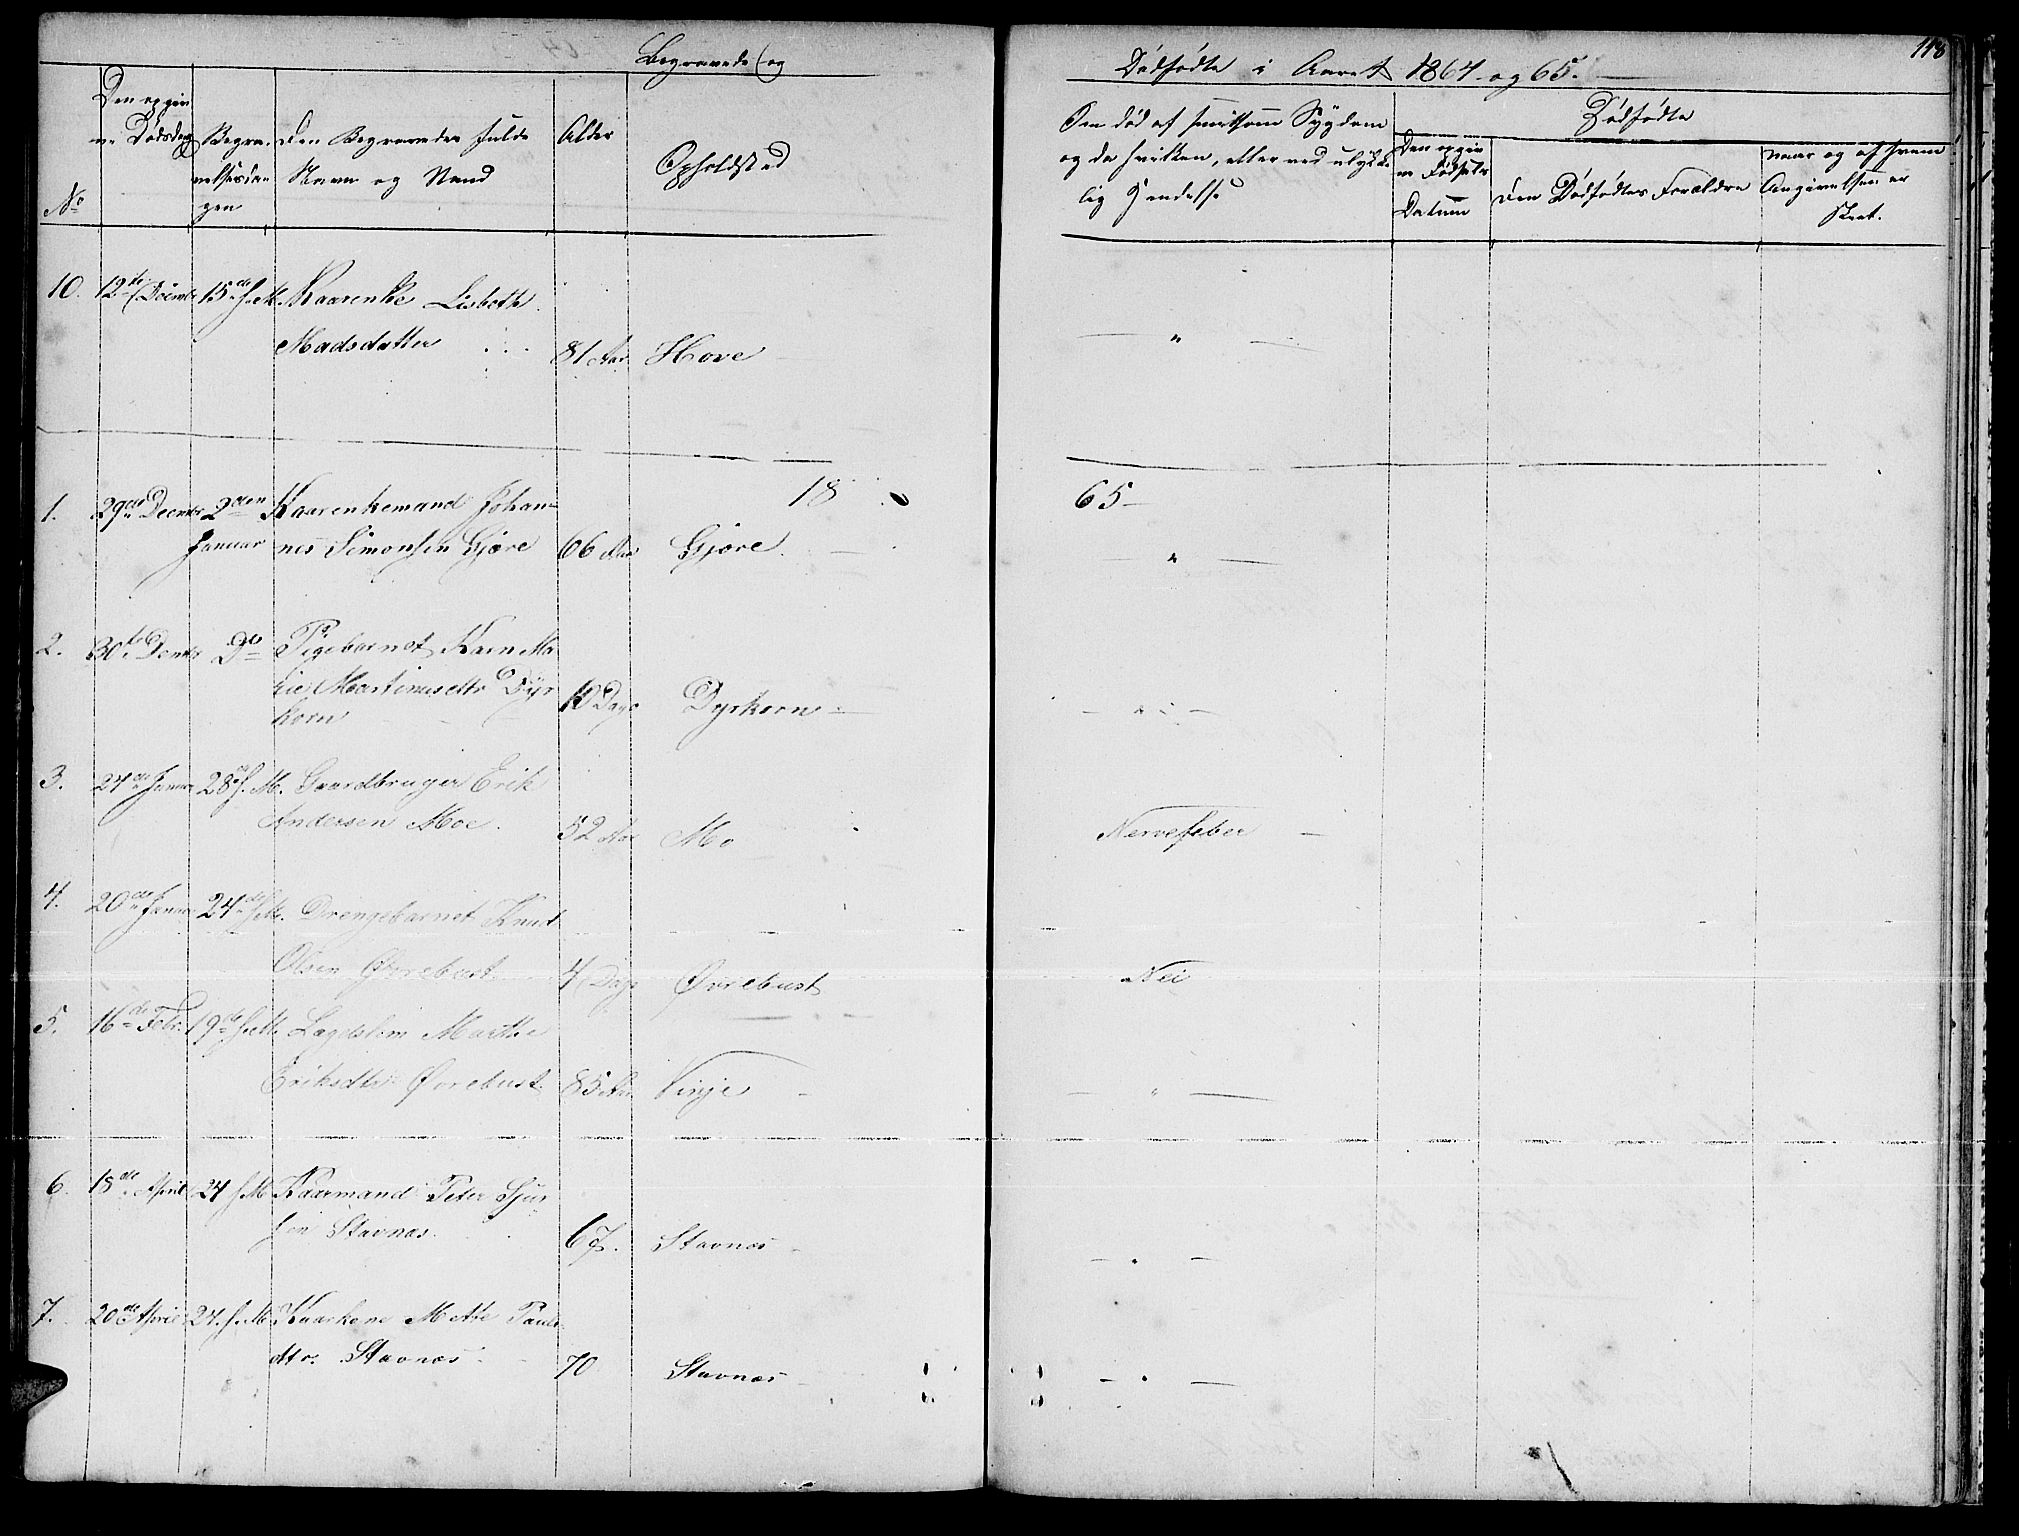 118
Begravede og
Dødfødte i Aaret 1864 og 65.
No
Den opgiv
ne Dødsdag
Begra-
velsesda-
gen
Den Begravedes fulde
Navn og Stand
Alder
Opholdsted
Om død af smitsom Sygdom
og da hvilken, eller ved ulykke-
lig Hendelse
Dødfødte
Den opgiv
ne Fødsels
Datum
Den Dødfødtes Forældre
naar og af hvem
Angivelsen er
skeet.
10. 12te Decembr 15de s. M. Kaarenke Lisbeth
Madsdatter 81 Aar Hove "
1865
1. 29de Decembr 2den Kaarenkemand Johan-
Januar nes Simonsen Gjøre 66 Aar Gjøre "
2. 30te Decmbr Do Pigebarnet Karn Ma
rie Martinusdtr Dyr
korn 10 Dage Dyrkorn "
3. 24de Januar 28de s. M. Gaardbruger Erik
Andersen Moe. 52 Aar Mo Nervefeber
4. 20de Januar 24de s. M. Drengebarnet Knud
Olsen Øvrebust 4 Dage Øvrebust Nei
5. 16de Febr. 19de s. M. Lægdslem Marthe
Eriksdtr Øvrebust 85 Aar Vinje "
6. 18de April 24 s. M. Kaarmand Peter Sjur
sen Stavnæs. 67. Stavnæs "
7. 20de April 24. s. M. Kaarkone Mette Pauls
dtr. Stavnæs 70 Stavnæs "